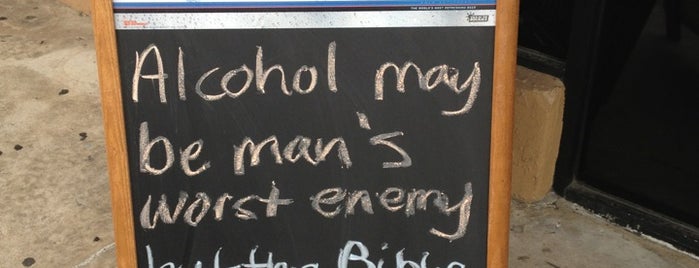 THE WORLD'S MOST REFRESHING BEER
Alcohol may
be man's
worst enemy
but the Bible